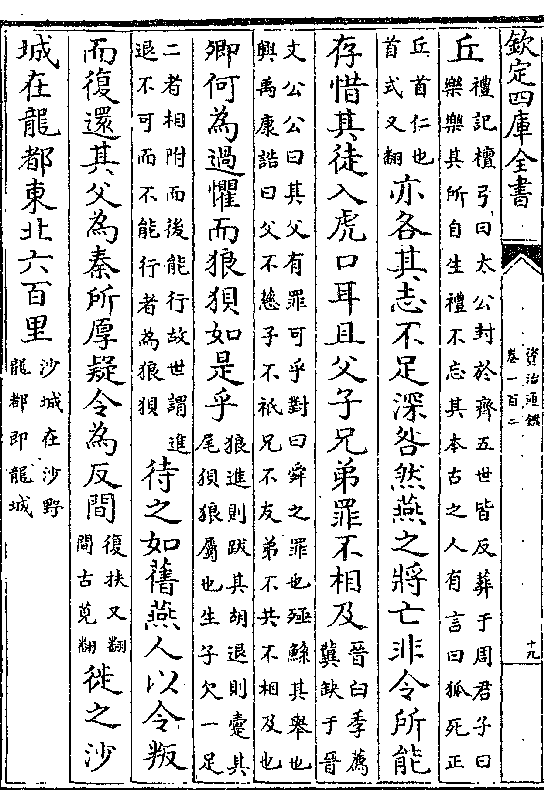 欽定四庫全書
資治通鑑
卷一百二
十九
丘
禮記檀弓曰太公封於齊五世皆反葬于周君子曰
樂樂其所自生禮不忘其本古之人有言曰狐死正
丘首仁也
首式又翻
亦各其志不足深咎然燕之將亡非令所能
存惜其徒入虎口耳且父子兄弟罪不相及
晉臼季薦
冀缺于晉
文公公曰其父有罪可乎對曰舜之罪也殛鯀其舉也
興禹康誥曰父不慈子不祗兄不友弟不共不相及也
卿何為過懼而狼狽如是乎
狼進則跋其胡退則疐其
尾狽狼屬也生子欠一足
二者相附而後能行故世謂進
退不可而不能行者為狼狽
待之如舊燕人以令叛
而復還其父為秦所厚疑令為反間
復扶又翻
間古莧翻
徙之沙
城在龍都東北六百里
沙城在沙野
龍都即龍城